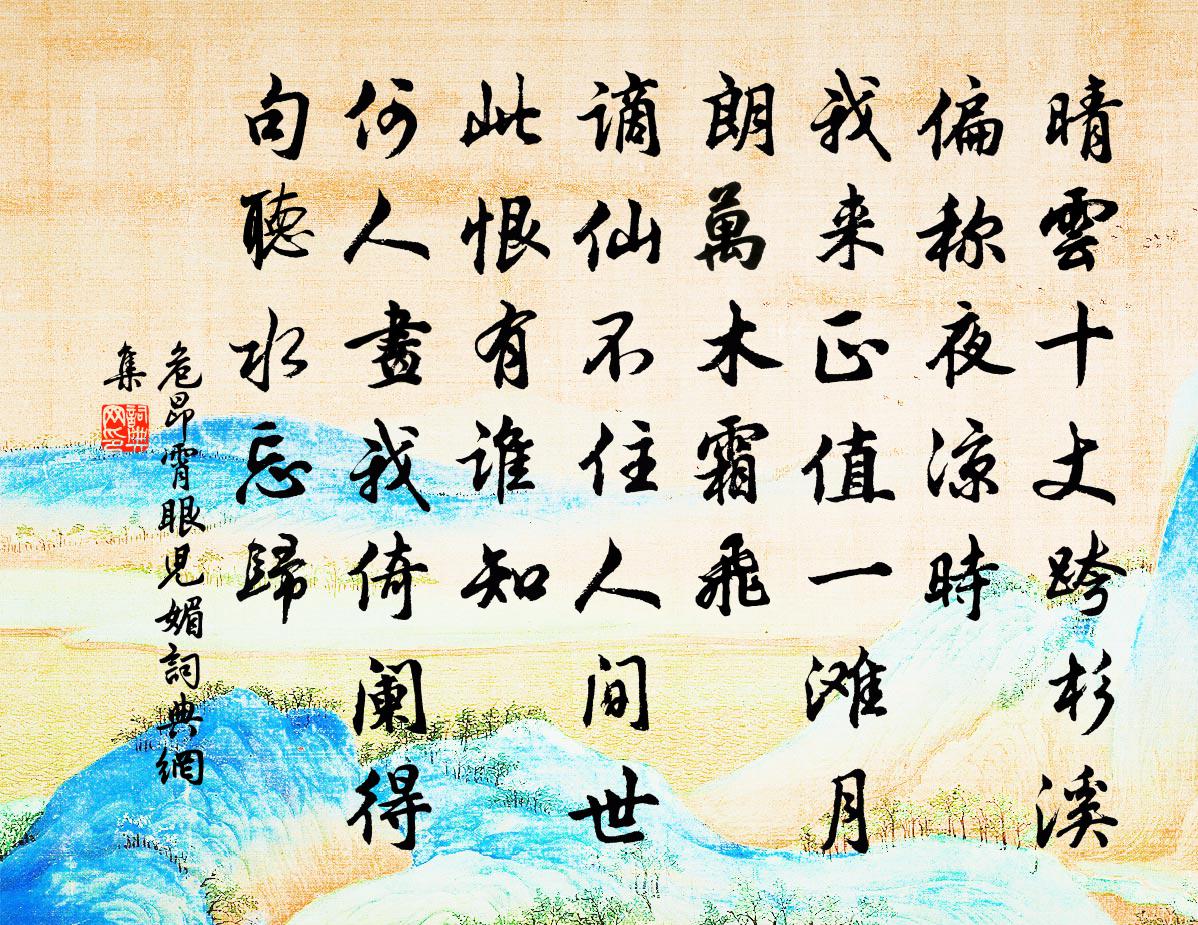 晴雲十丈跨杉溪
偏称夜凉時
我来正值一滩月
朗萬木霜飛
謫仙不住人间世
此恨有誰知
何人畫我倚阑得
句聽水忘歸
危昂霄眼児媚詞典網
集